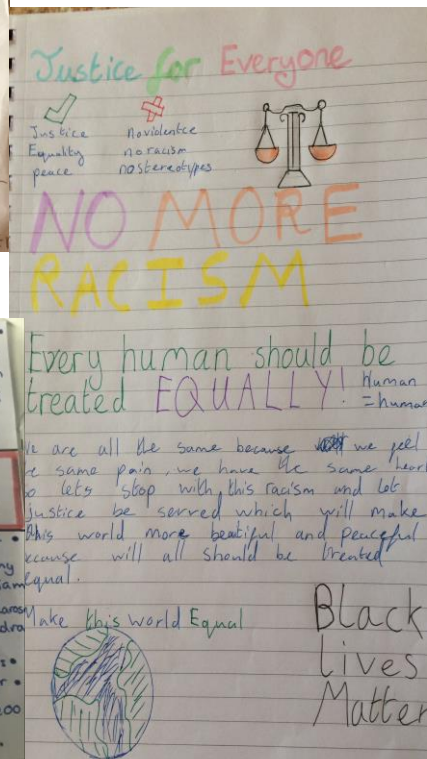 Justice for Everyone
Justice no violentce
Equality no racism
peace no stereotypes
NO MORE
RACISM
Every human should be
treated EQUALLY! Human
= human
are all the same because we feel
same pain, we have the same
lets stop with this racism and let
justice be served which will make
this world more beautiful and peaceful
will all should be treated
Equal.
Make this world Equal
Black
lives
Matter